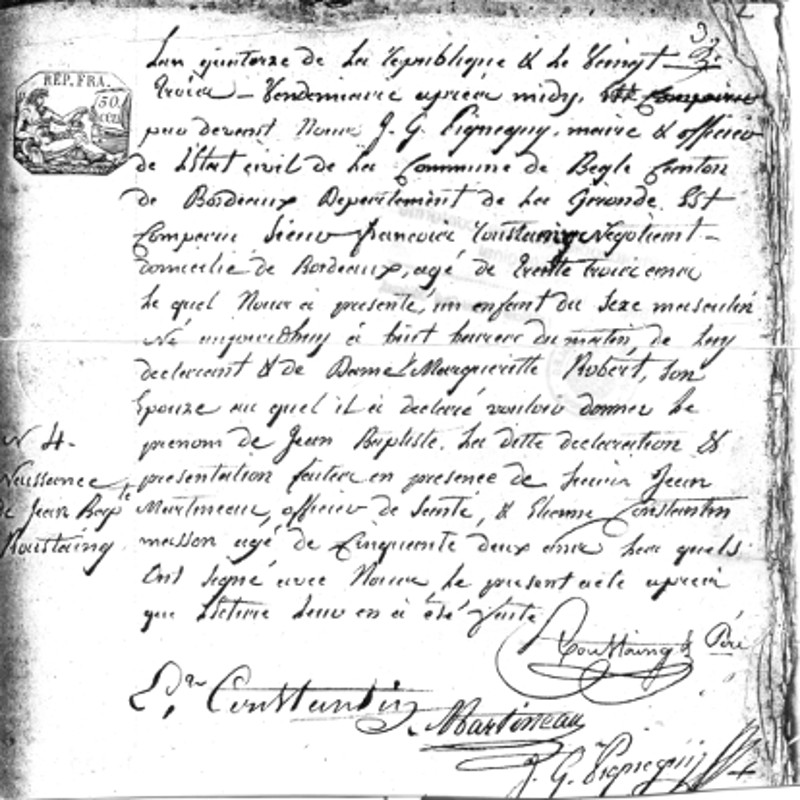 REP. FRA.
50
cen
Lan quatorze de La republique & Le Vingt
troies Vendemiaire aprees midy,
par devant Nous J. G. Pigneguy, maire & officier
de L'Etat civil de La Commune de Begle Canton
de Bordeaux Departement de La Gironde. Est
Comparu Sieur francoies Toustaing Negotient
domicilié de Bordeaux, agé de trente troies ans
Le quel Nous à presenté, un enfant du Sexe masculin
Né aujourdhuy à huit heures du matin, de Luy
declarant & de Dame Margueritte Robert, Son
Epouze au quel il à declaré vouloir donner Le
prenom de Jean Baptiste. La ditte declaration &
presentation faites en presence de Jean
Martineau, officier de Senté, & Etienne Constantin
masson agé de Cinquante deux ans Les quels
Ont Signé avec Nous Le present acte aprees
que Lecture Leur en à été faite
N 4.
Naissance
de Jean Bapte
Toustaing
Toustaing Pere
Constantin
Martineau
J. G. Pigneguy